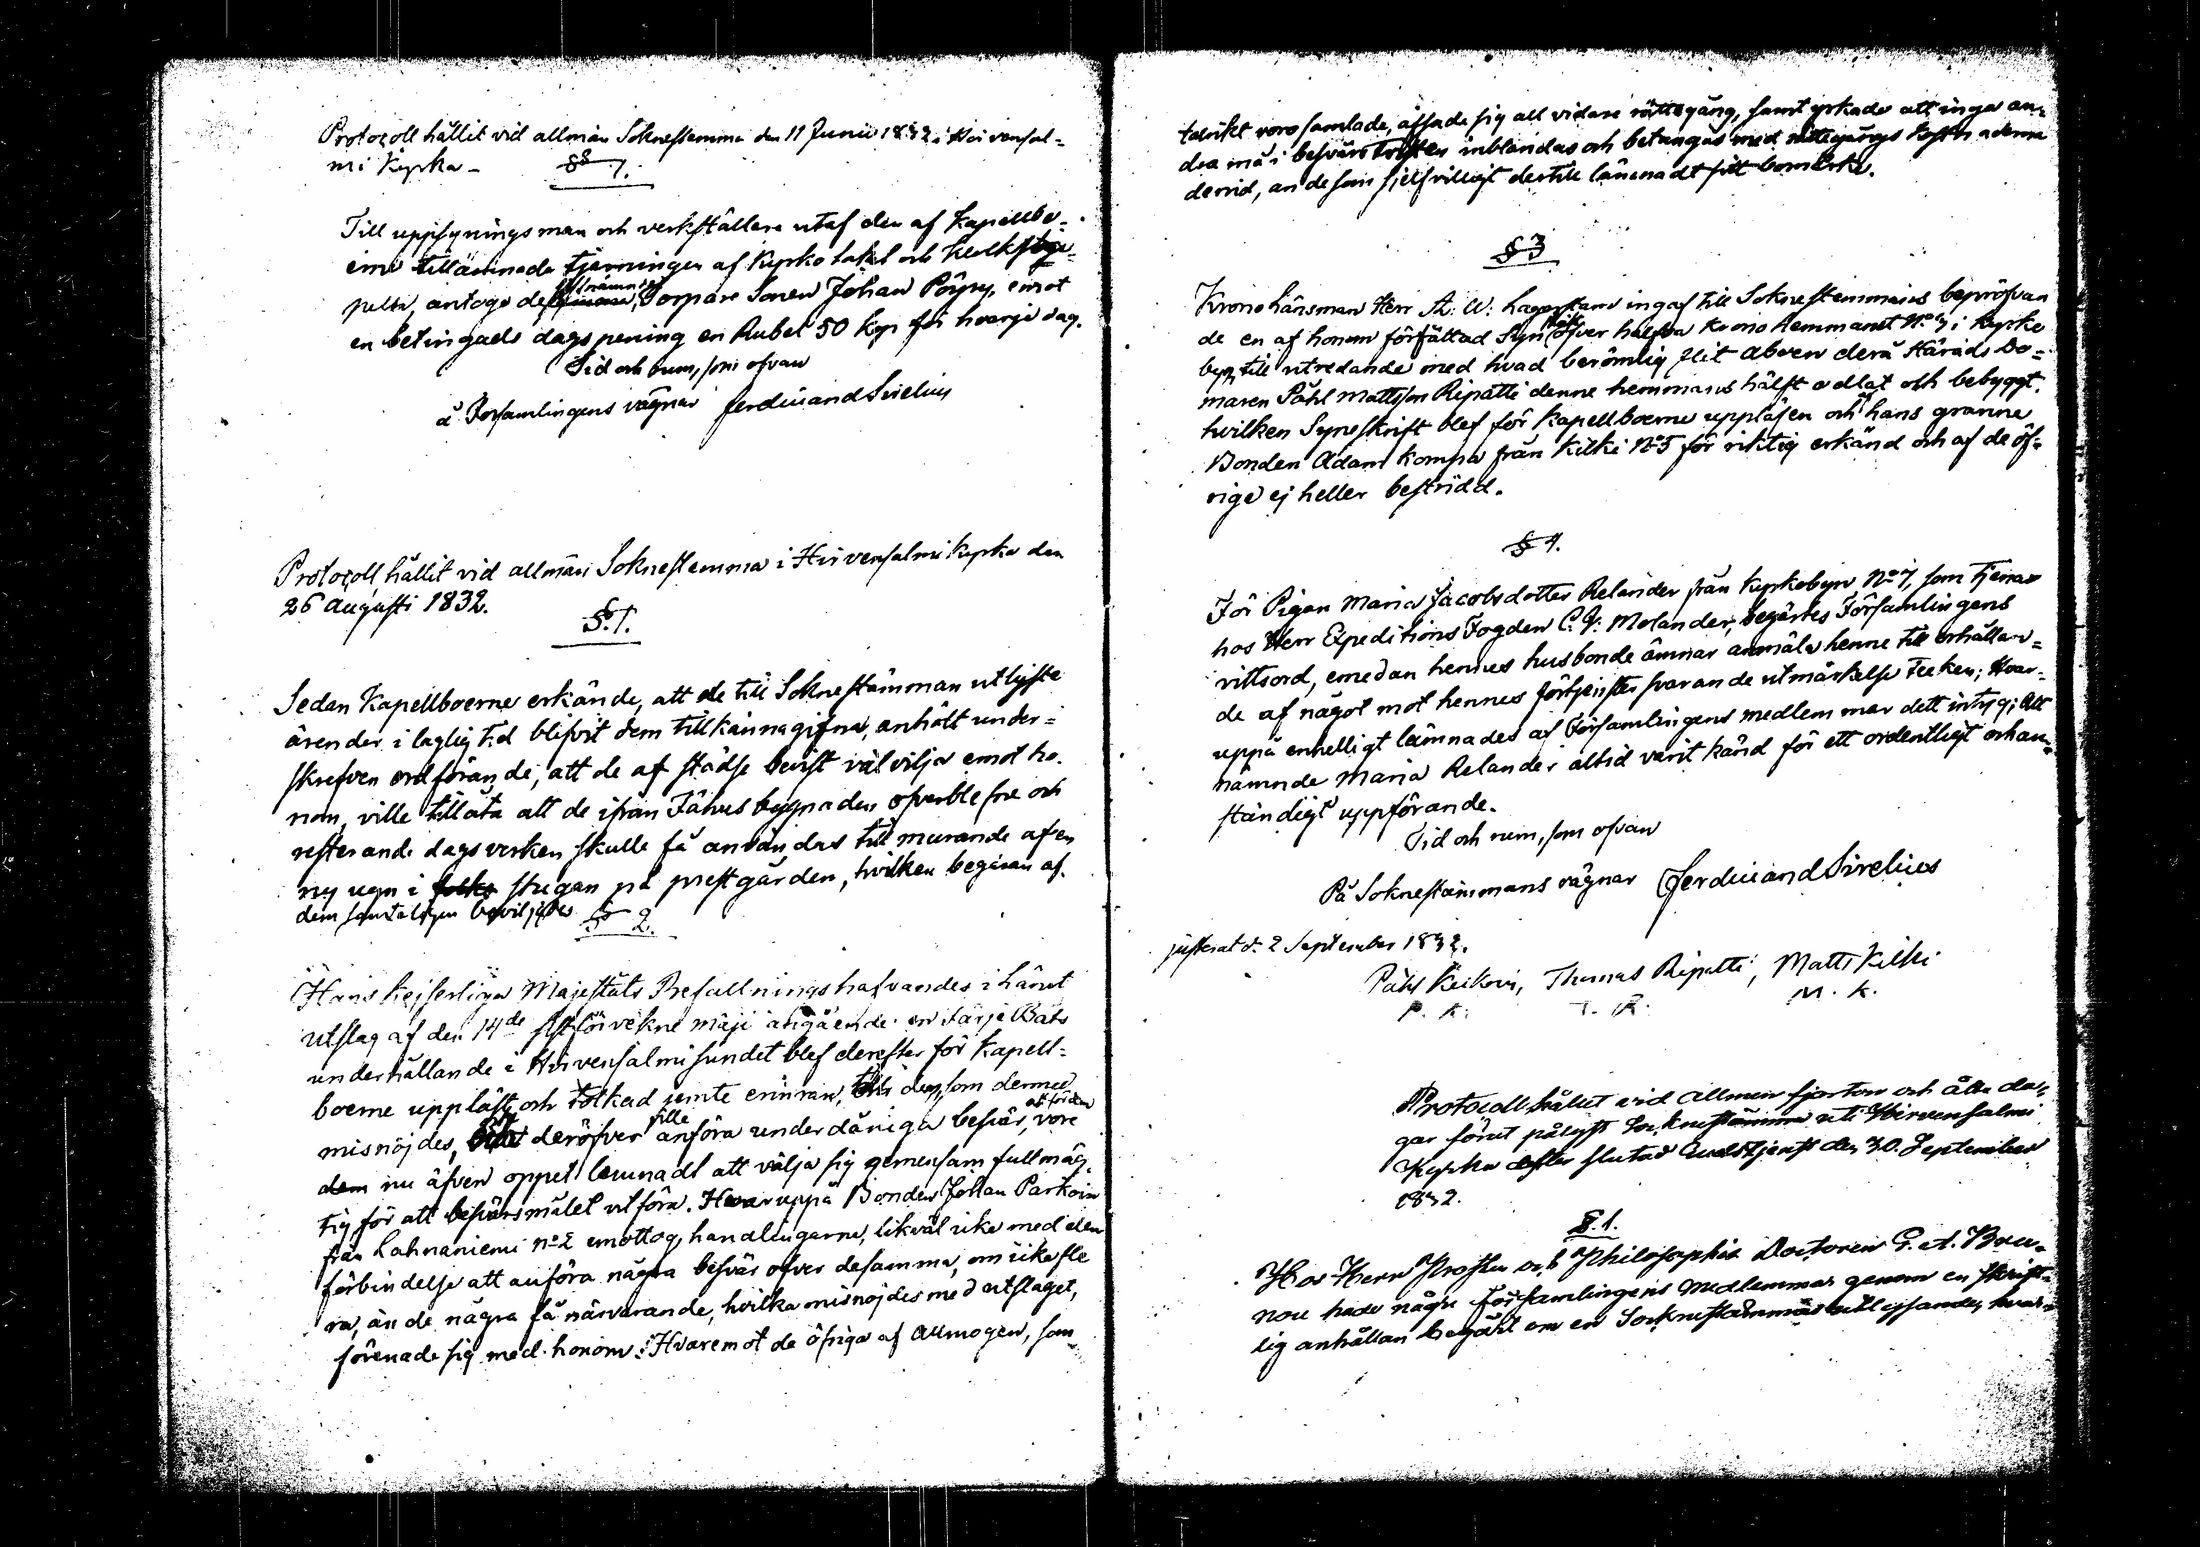 Protocoll hållit vid allmän Soknestemma den 11 Junii 1832 i Hirvensal=
mi Kyrka –
§ 1.
Till uppsyningsman och verkställare utaf den af Kapellbo=
erne tillämnade tjärningen af Kyrko taket och klocksta=
peln, antogs Torpare Sonen Johan Pöyry, emot
en betingads dagspening en Rubel 50 kop för hvarje dag.
Tid och rum, som ofvan
å Församlingens vägnar Ferdinand Sirelius
Protocoll hållit vid allmän Soknestemma i Hirvensalmi Kyrka den
26 Augusti 1832.
§. 1.
Sedan Kapellboerne erkände, att de till Soknestämman utlyste
ärender i laglig tid blifvit dem tillkännagifne, anhölt under=
skrefven ordförande, att de af städse bevist välvilja emot ho=
nom, ville tillåta att de ifrån Fähus byggnaden ofverblefne och
resterande dagsverken skulle få användas till murande af en
ny ugn i stugan på prestgården, hvilken begäran af
dem samteligen beviljades
§ 2.
Hans Kejserliga Majestäts Befallningshafvandes i länet
utslag af den 14de sistförvekne Maji angående en Färje Båts
underhållande i Hirvensalmi sundet blef derefter för Kapell=
boerne uppläst och tolkad jemte erinran, den, som dermed
misnöjdes, ville deröfver anföra underdåniga besvär, vore
att för dem
nu äfven öppet lemnadt att välja sig gemensam fullmäg=
tig för att besvärsmålet utföra. Hvaruppå Bonden Johan Parkoin
från Lahnaniemi No 2 emottog handlingarne, likväl icke med den
förbindelse att anföra några besvär ofver desamma, om icke fle
ra, än de några få närvarande, hvilka misnöjdes med utslaget,
förenade sig med honom: Hvaremot de öfriga af Allmogen, som
talrikt voro samlade, afsade sig all vidare rättegång, samt yrkade att inga an=
dra må i besvärs inblandas och betungas med rättegångs kostnaderne
dervid, än de som sjelfvilligt dertill lämnadt sitt bomärke.
§ 3
Krono länsman Herr A: W: Lagerstam ingaf till Soknestemmans bepröfvan
de en af honom författad Syn öfver halfva Krono hemmanet No 7 i Kyrko
byn, till utredande med hvad berömlig flit Åboen derå Härads Do=
maren Påhl Mattsson Ripatti denne hemmans hälft odlat och bebyggt.
hvilken Syneskrift blef för Kapellboerne uppläsen och af hans granne
Bonden Adam Kompa från Kilki No 5 för riktig erkänd och af de öf=
rige ej heller bestridd.
§ 4.
För Pigan Maria Jacobsdotter Relander från Kyrkobyn No 7, som tjenar
hos Herr Expeditions Fogden C. G: Molander, begärtes Församlingens
vittsord, emedan hennes husbonde ämnar anmäla henne till erhållan=
de af något mot hennes förtjenster svarande utmärkelse tecken; Hvar=
uppå enhelligt lämnades af Församlingens medlemmar dett intyg; Att
nämnde Maria Relander altid varit känd för ett ordentligt och an=
ständigt uppförande.
Tid och rum, som ofvan
På Soknestämmans vägnar Ferdinand Sirelius
justerat d. 2 September 1832.
Påhl Keikoin, Thomas Ripatti, Matts Kilki
P. K. T. R. M. K.
Protocoll hållit vid allmen fjorton och åtta da=
gar förut pålyst Soknestämma uti Hirvensalmi
Kyrka efter slutad Gudstjenst den 30. September
1832.
§. 1.
Hos Herr Prosten och Philosophie Doctoren G. A. Bru=
nou hade några församlingens medlemmar genom en skrift=
lig anhållan begärt om en Soknestämmas utlysande, hvar=